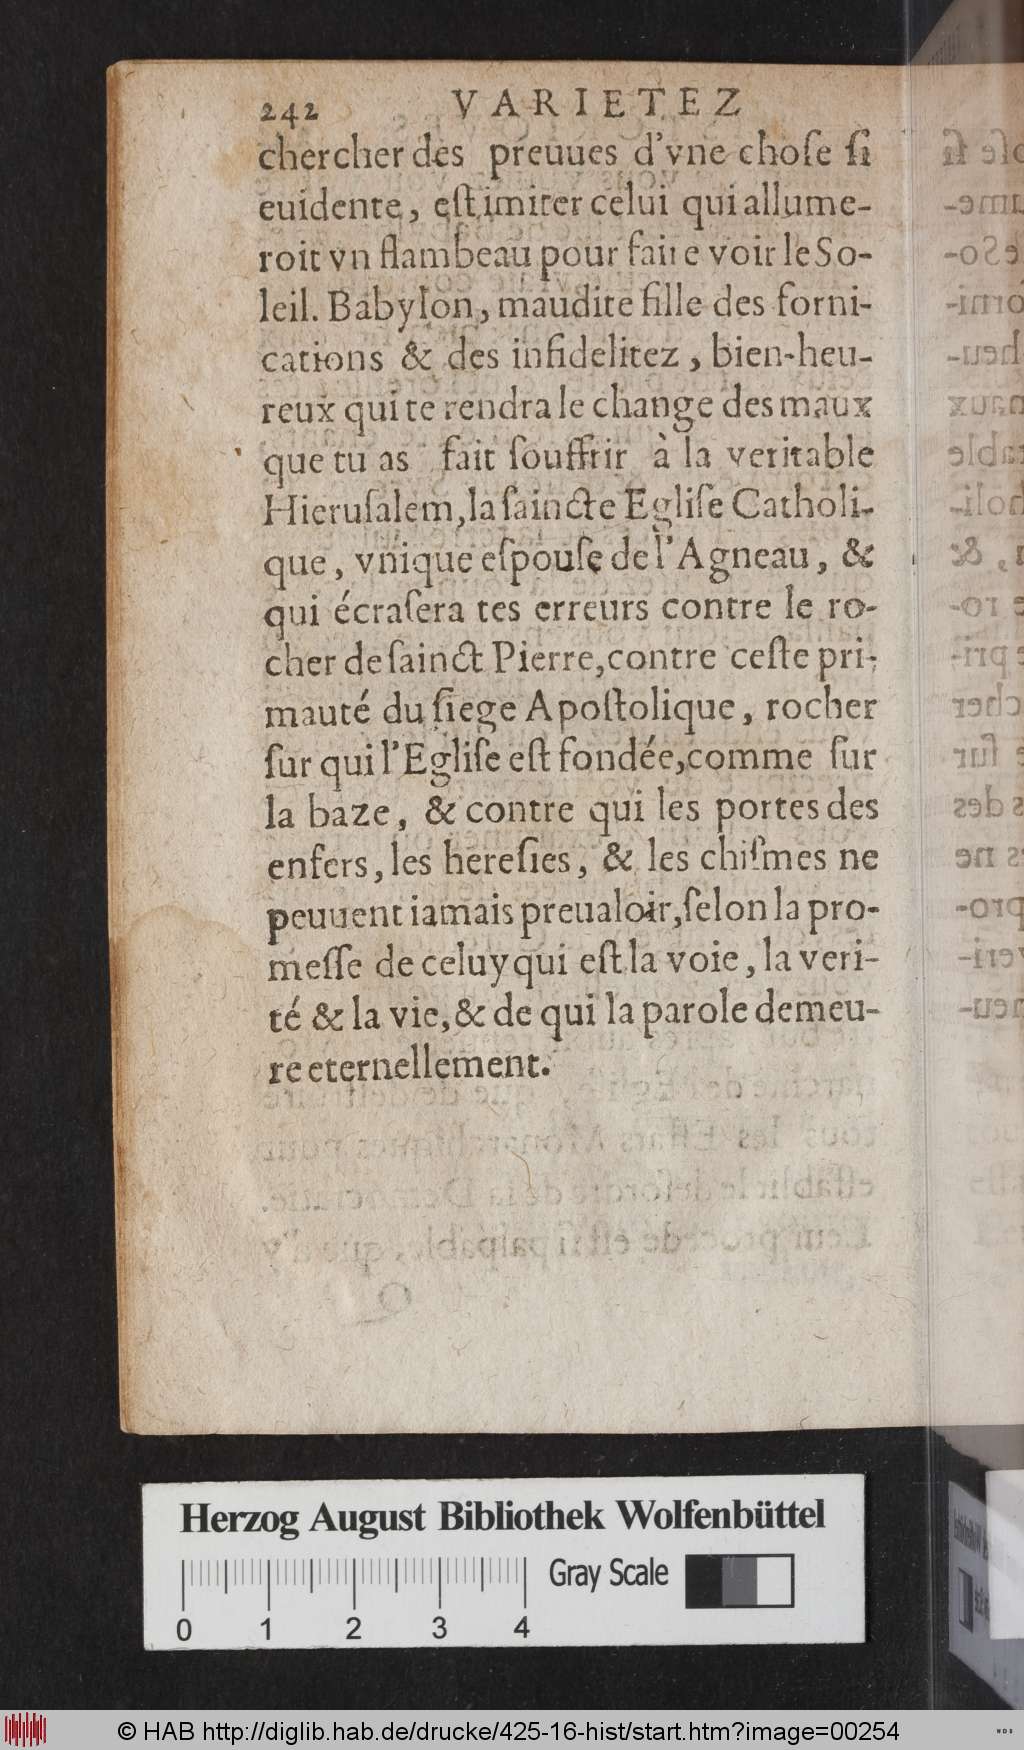 242 VARIETEZ
chercher des preuues d'vne choſe ſi
euidente, eſt imiter celui qui allume-
roit vn flambeau pour faire voir le So-
leil. Babylon, maudite fille des forni-
cations & des infidelitez, bien-heu-
reux qui te rendra le change des maux
que tu as fait ſouffrir à la veritable
Hieruſalem, la ſaincte Egliſe Catholi-
que, vnique eſpouſe de l'Agneau, &
qui écraſera tes erreurs contre le ro-
cher de ſainct Pierre, contre ceſte pri-
mauté du ſiege Apoſtolique, rocher
ſur qui l'Egliſe eſt fondée, comme ſur
la baze, & contre qui les portes des
enfers, les hereſies, & les chiſmes ne
peuuent iamais preualoir, ſelon la pro-
meſſe de celuy qui eſt la voie, la veri-
té & la vie, & de qui la parole demeu-
re eternellement.
Herzog August Bibliothek Wolfenbüttel
Gray Scale
0 1 2 3 4
© HAB http://diglib.hab.de/drucke/425-16-hist/start.htm?image=00254